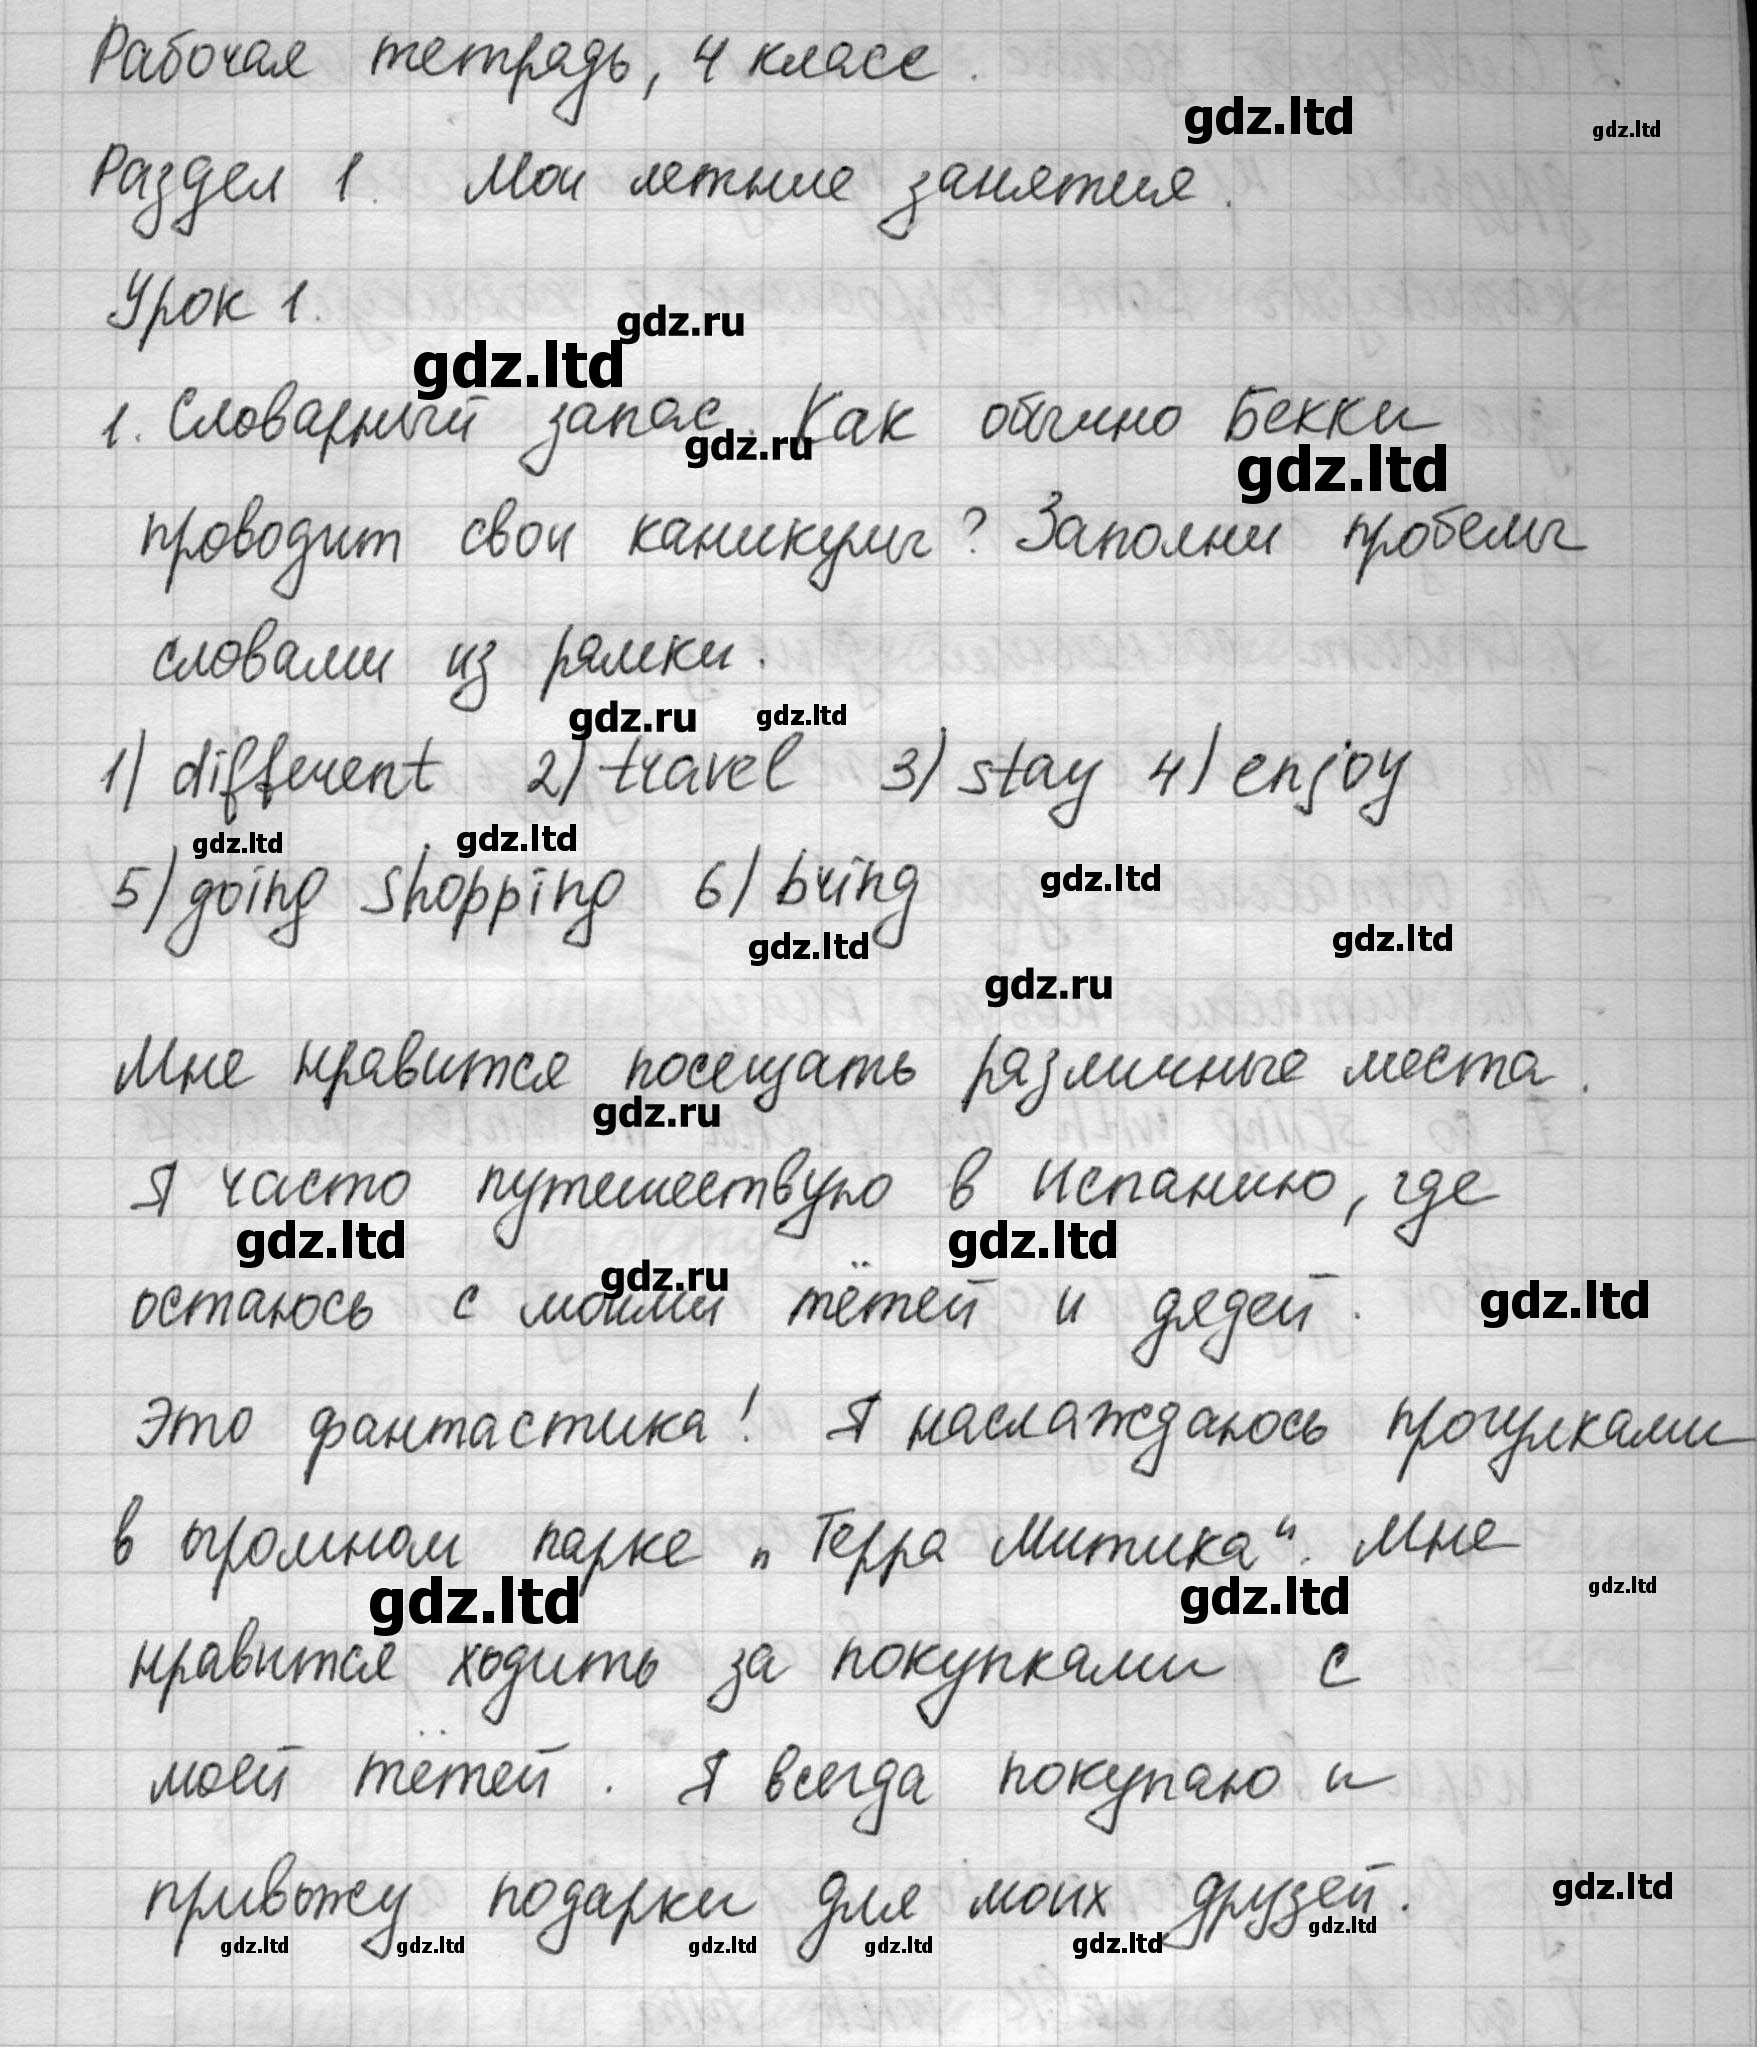 Рабочая тетрадь, 4 класс.
gdz.ltd gdz.ltd
Раздел 1. Мои летние занятия.
Урок 1.
gdz.ru
gdz.ltd
1. Словарный запас. Как обычно Бекки
gdz.ru gdz.ltd
проводит свои каникулы? Заполни пробелы
словами из рамки.
gdz.ru gdz.ltd
1) different 2) travel 3) stay 4) enjoy
gdz.ltd gdz.ltd
5) going shopping 6) bring
gdz.ltd
gdz.ltd gdz.ltd
gdz.ru
Мне нравится посещать различные места.
gdz.ru
Я часто путешествую в Испанию, где
gdz.ltd gdz.ltd
gdz.ru
остаюсь с моими тётей и дядей.
gdz.ltd
Это фантастика! Я наслаждаюсь прогулками
в огромном парке „Терра Митика“. Мне
gdz.ltd gdz.ltd gdz.ltd
нравится ходить за покупками с
моей тётей. Я всегда покупаю и
привожу подарки для моих друзей.
gdz.ltd
gdz.ltd gdz.ltd gdz.ltd gdz.ltd gdz.ltd gdz.ltd